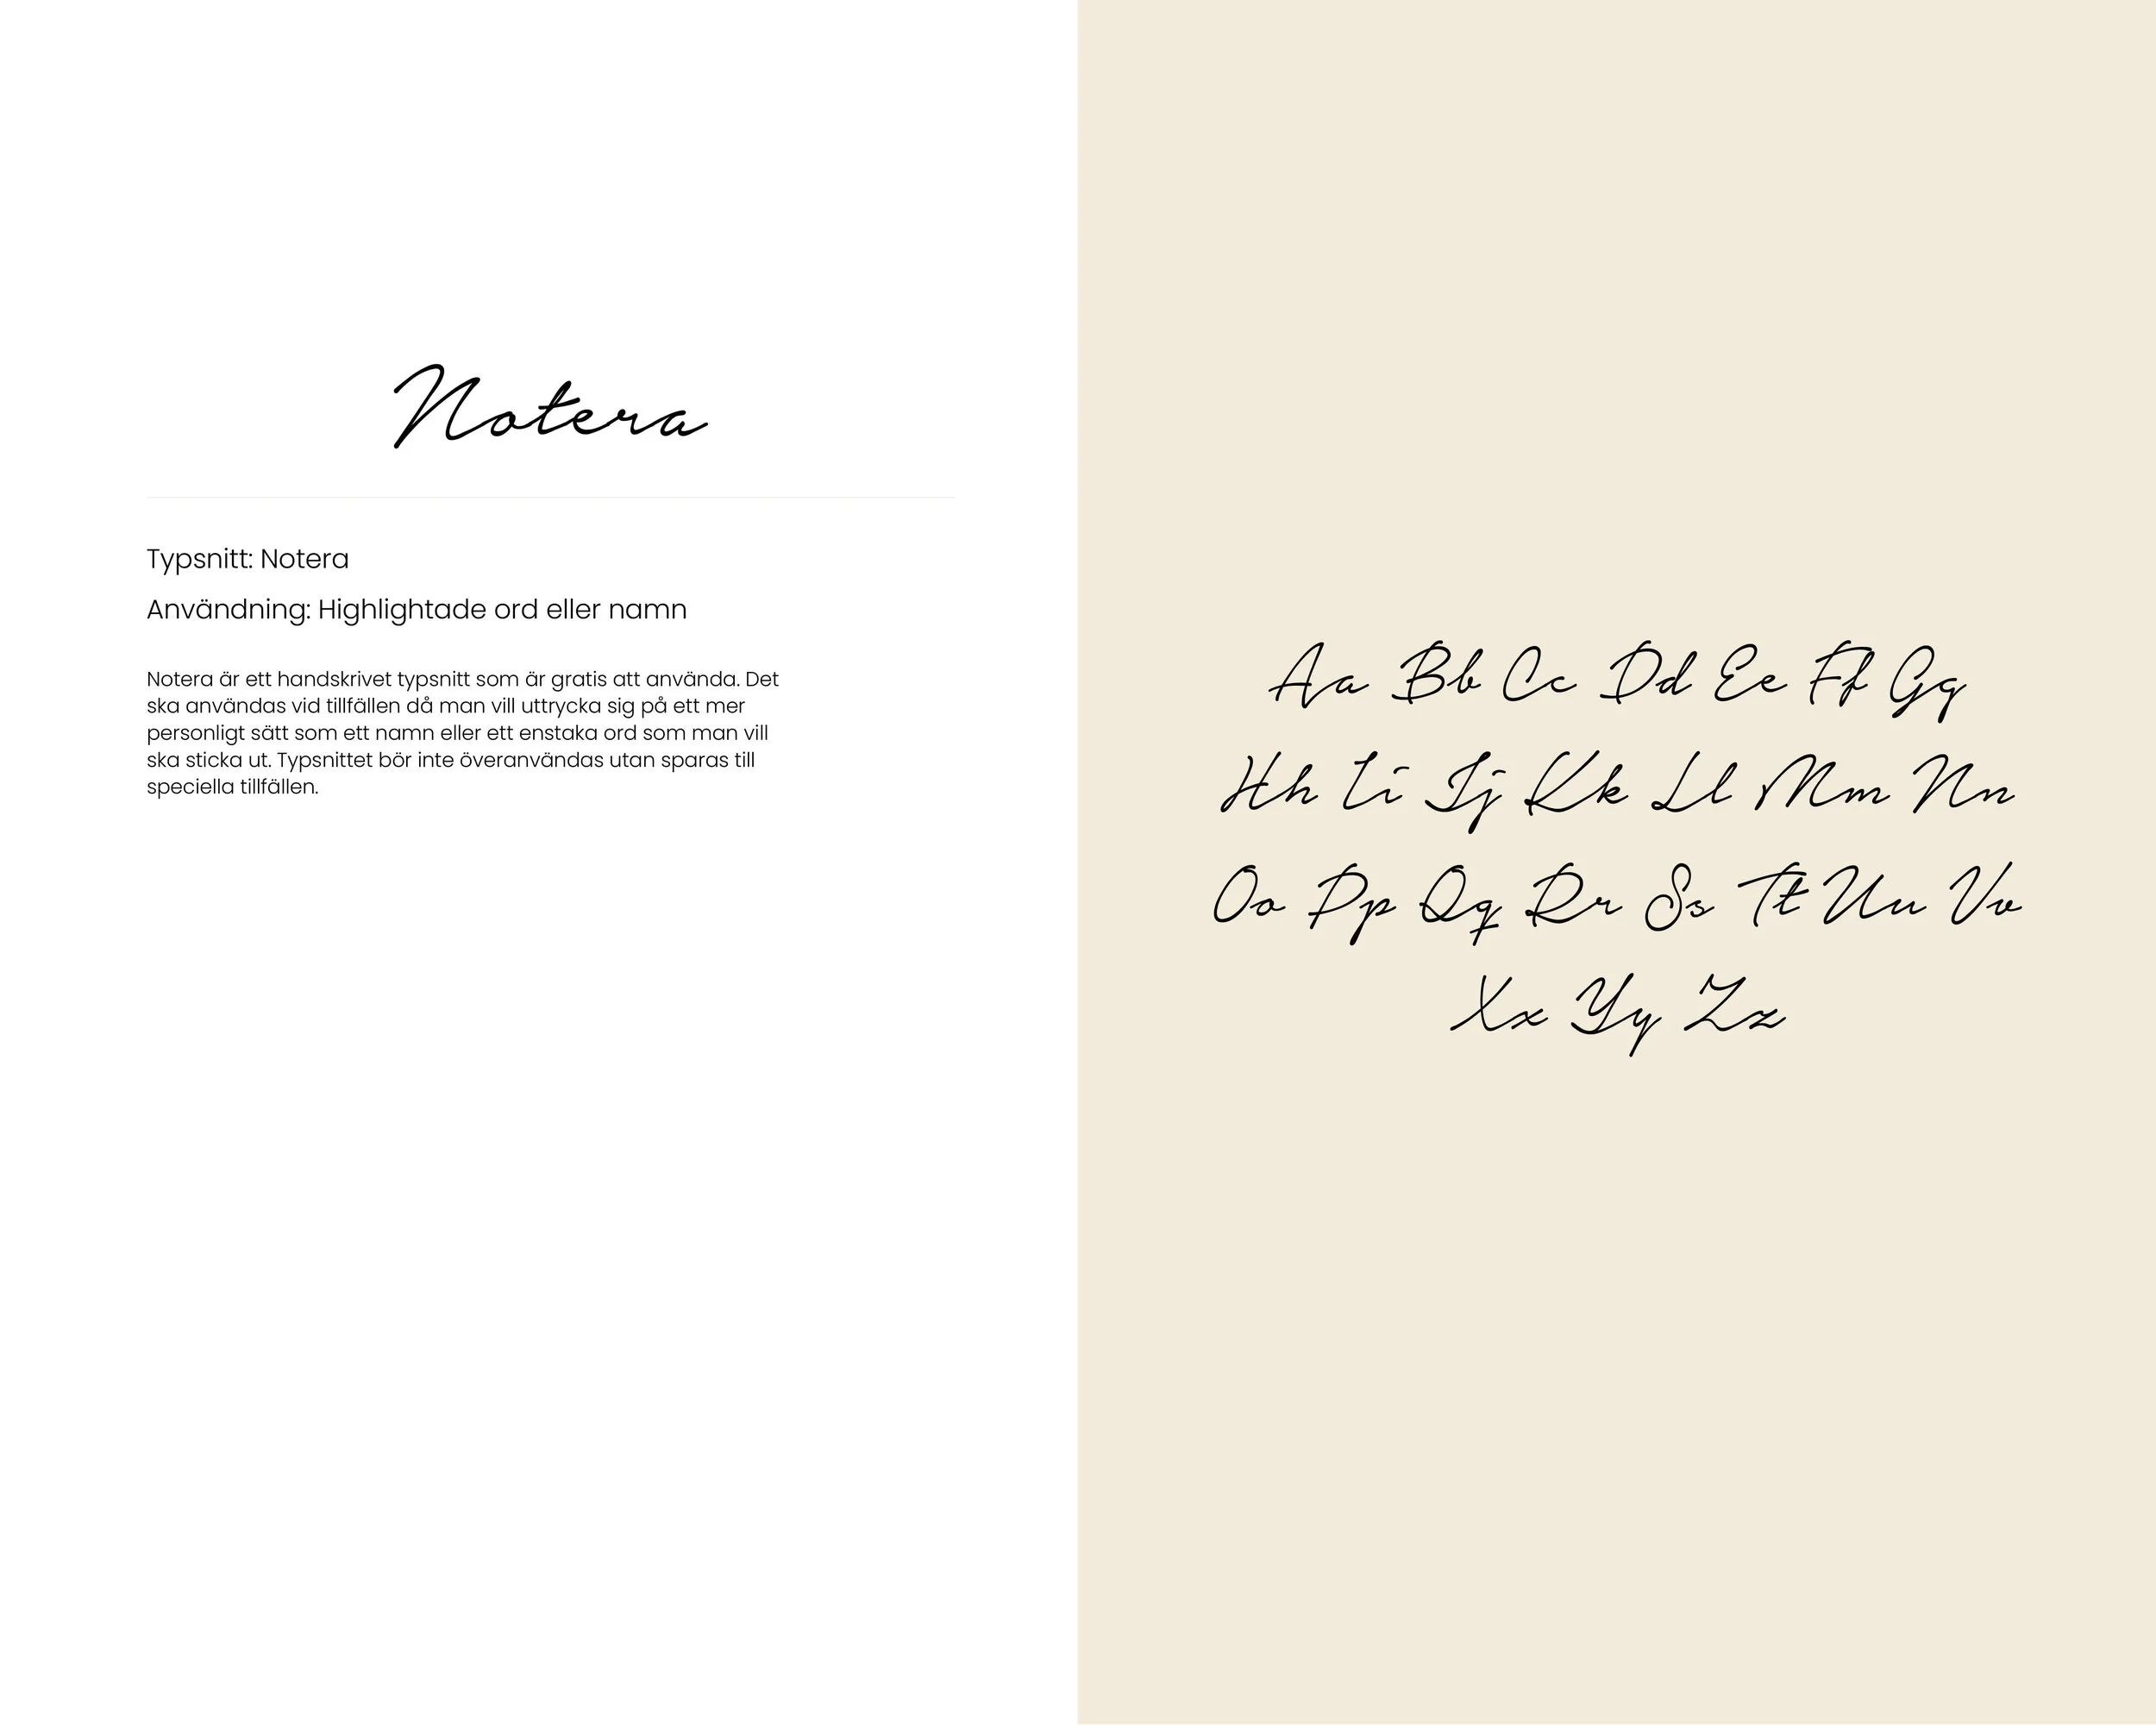 Notera
Typsnitt: Notera
Användning: Highlightade ord eller namn
Notera är ett handskrivet typsnitt som är gratis att använda. Det
ska användas vid tillfällen då man vill uttrycka sig på ett mer
personligt sätt som ett namn eller ett enstaka ord som man vill
ska sticka ut. Typsnittet bör inte överanvändas utan sparas till
speciella tillfällen.
Aa Bb Cc Dd Ee Ff Gg
Hh Ii Jj Kk Ll Mm Nn
Oo Pp Qq Rr Ss Tt Uu Vv
Xx Yy Zz